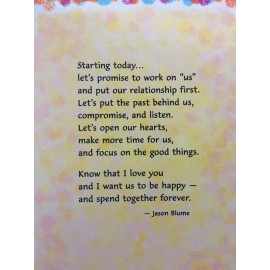 Starting today...
let's promise to work on "us"
and put our relationship first.
Let's put the past behind us,
compromise, and listen.
Let's open our hearts,
make more time for us,
and focus on the good things.
Know that I love you
and I want us to be happy —
and spend together forever.
— Jason Blume